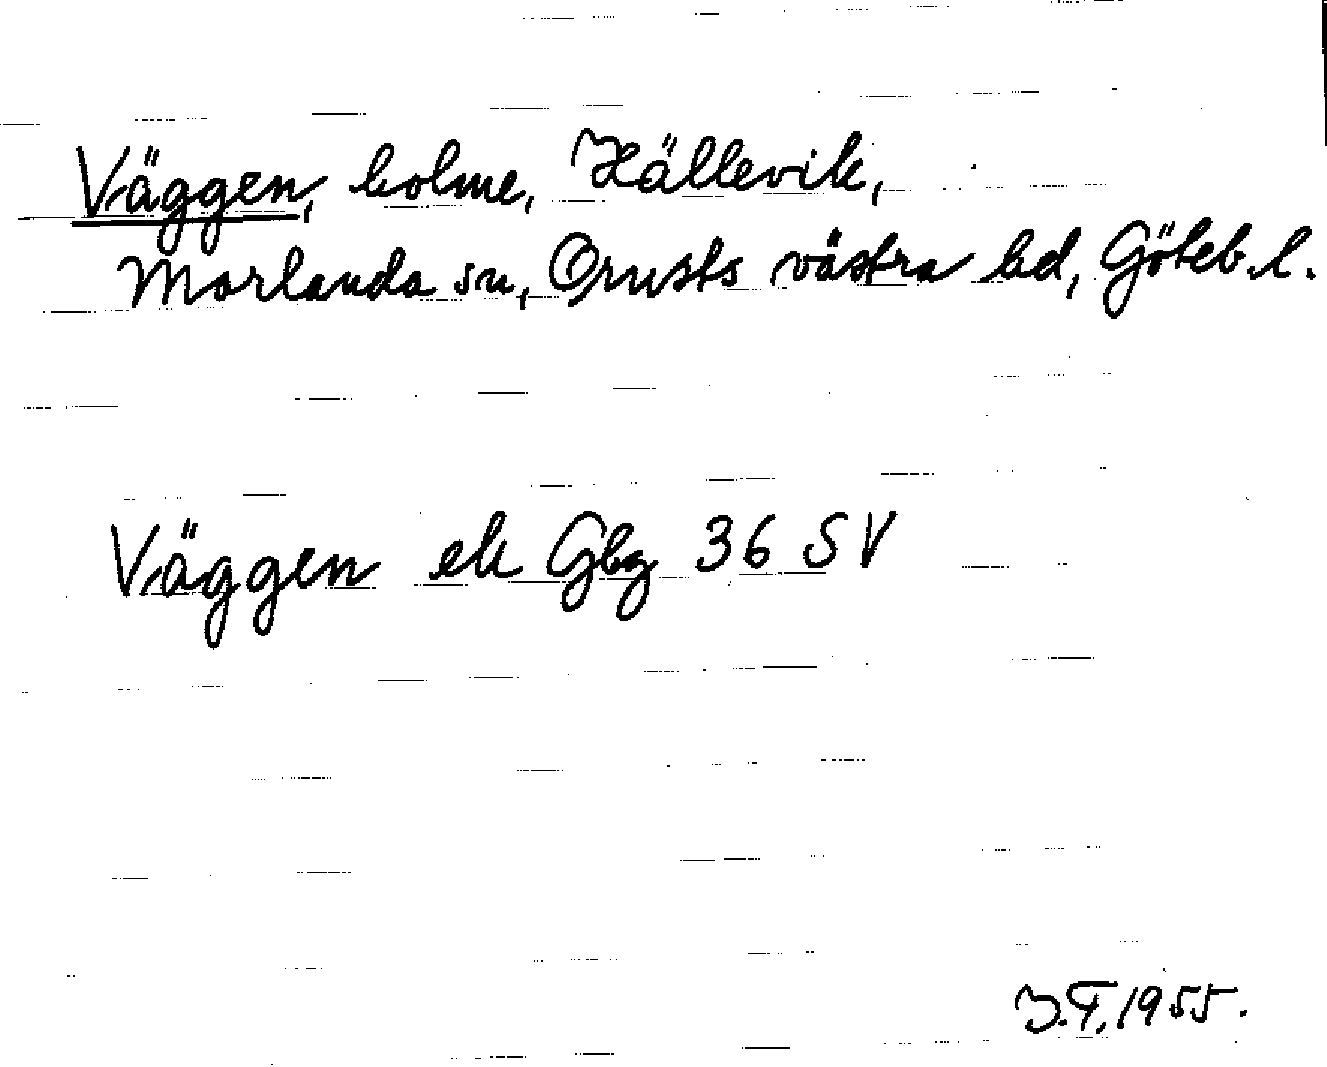 Väggen, holme, Hällevik,
Morlanda sn, Orusts västra hd, Göteb. l.
Väggen ek Gbg 36 SV
I.F. 1955.